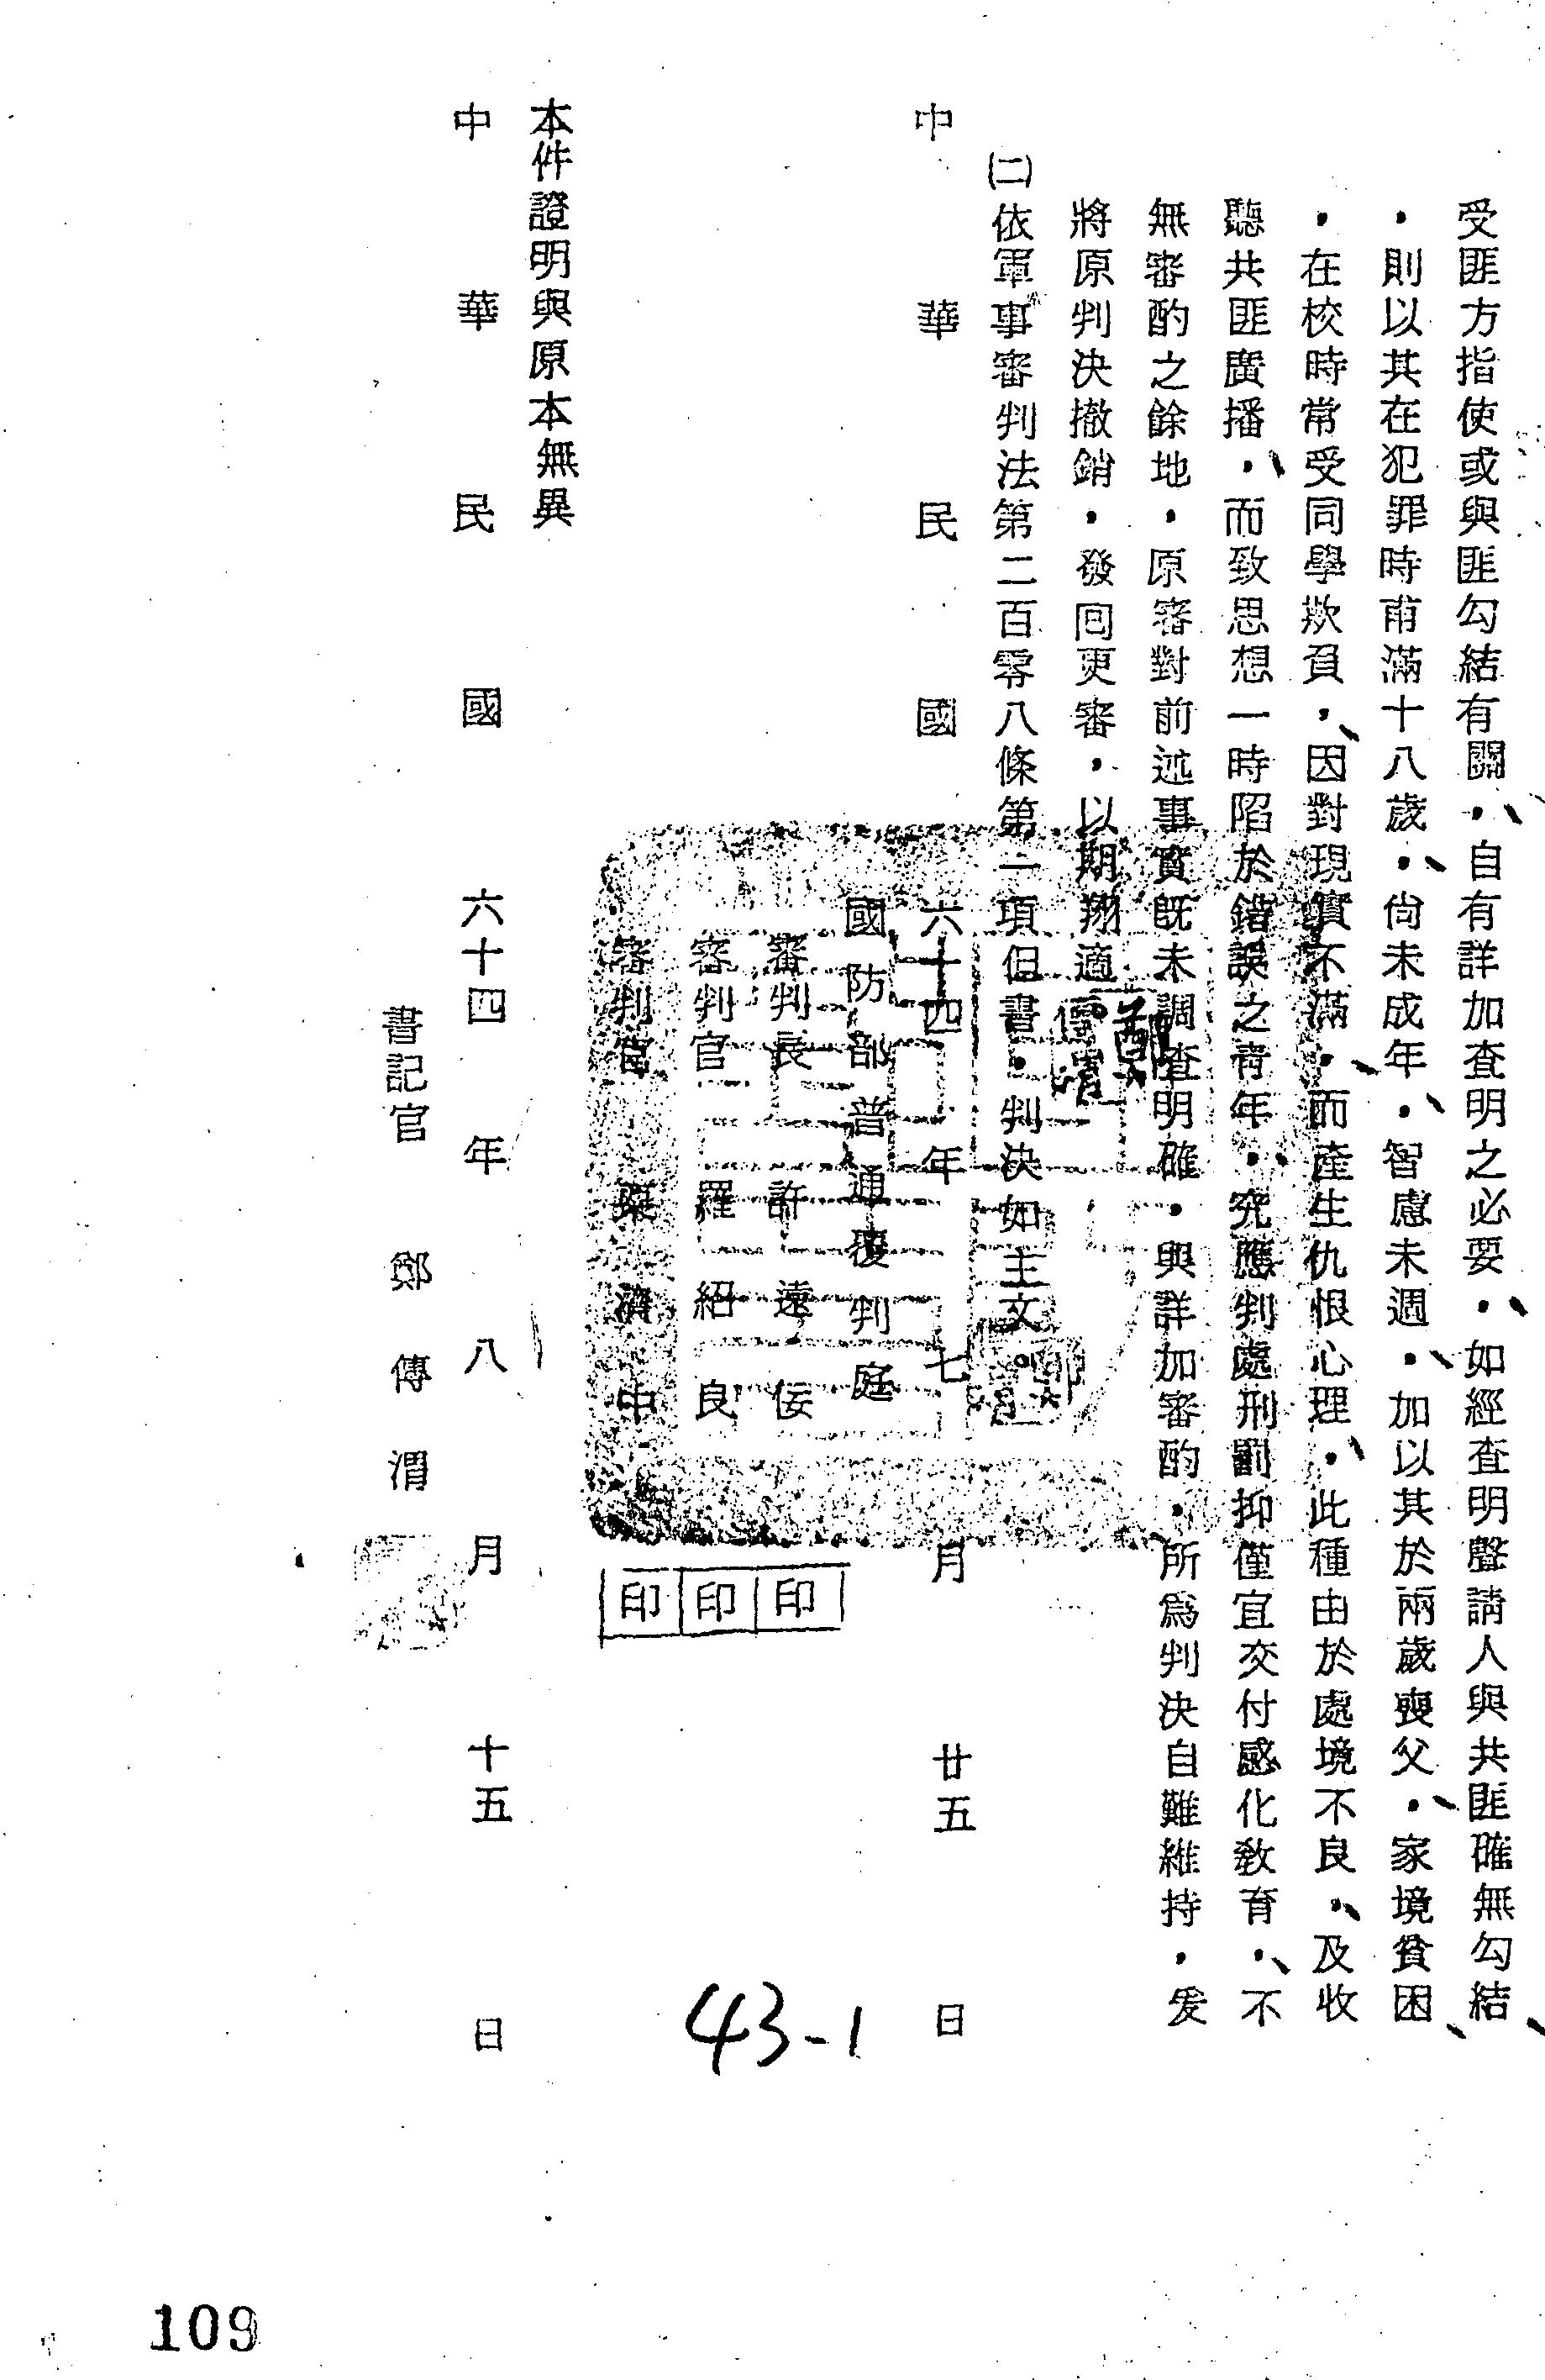 受匪方指使或與匪勾結有關，自有詳加查明之必要，如經查明聲請人與共匪確無勾結
，則以其在犯罪時甫滿十八歲，尙未成年，智慮未週，加以其於兩歲喪父，家境貧困
，在校時常受同學欺負，因對現實不滿，而產生仇恨心理，此種由於處境不良，及收
聽共匪廣播，而致思想一時陷於錯誤之靑年，究應判處刑罰抑僅宜交付感化敎育，不
無審酌之餘地，原審對前述事實旣未調查明確，與詳加審酌，所爲判決自難維持，爰
將原判決撤銷，發回更審，以期翔適
㈡依軍事審判法第二百零八條第一項但書，判決如主文。
中華民國六十四年七月廿五日
國防部普通覆判庭
審判長許遠佞
審判官羅紹良
審判官 濟中
印
印
印
本件證明與原本無異
中華民國六十四年八月十五日
書記官鄭傳渭
43-1
109